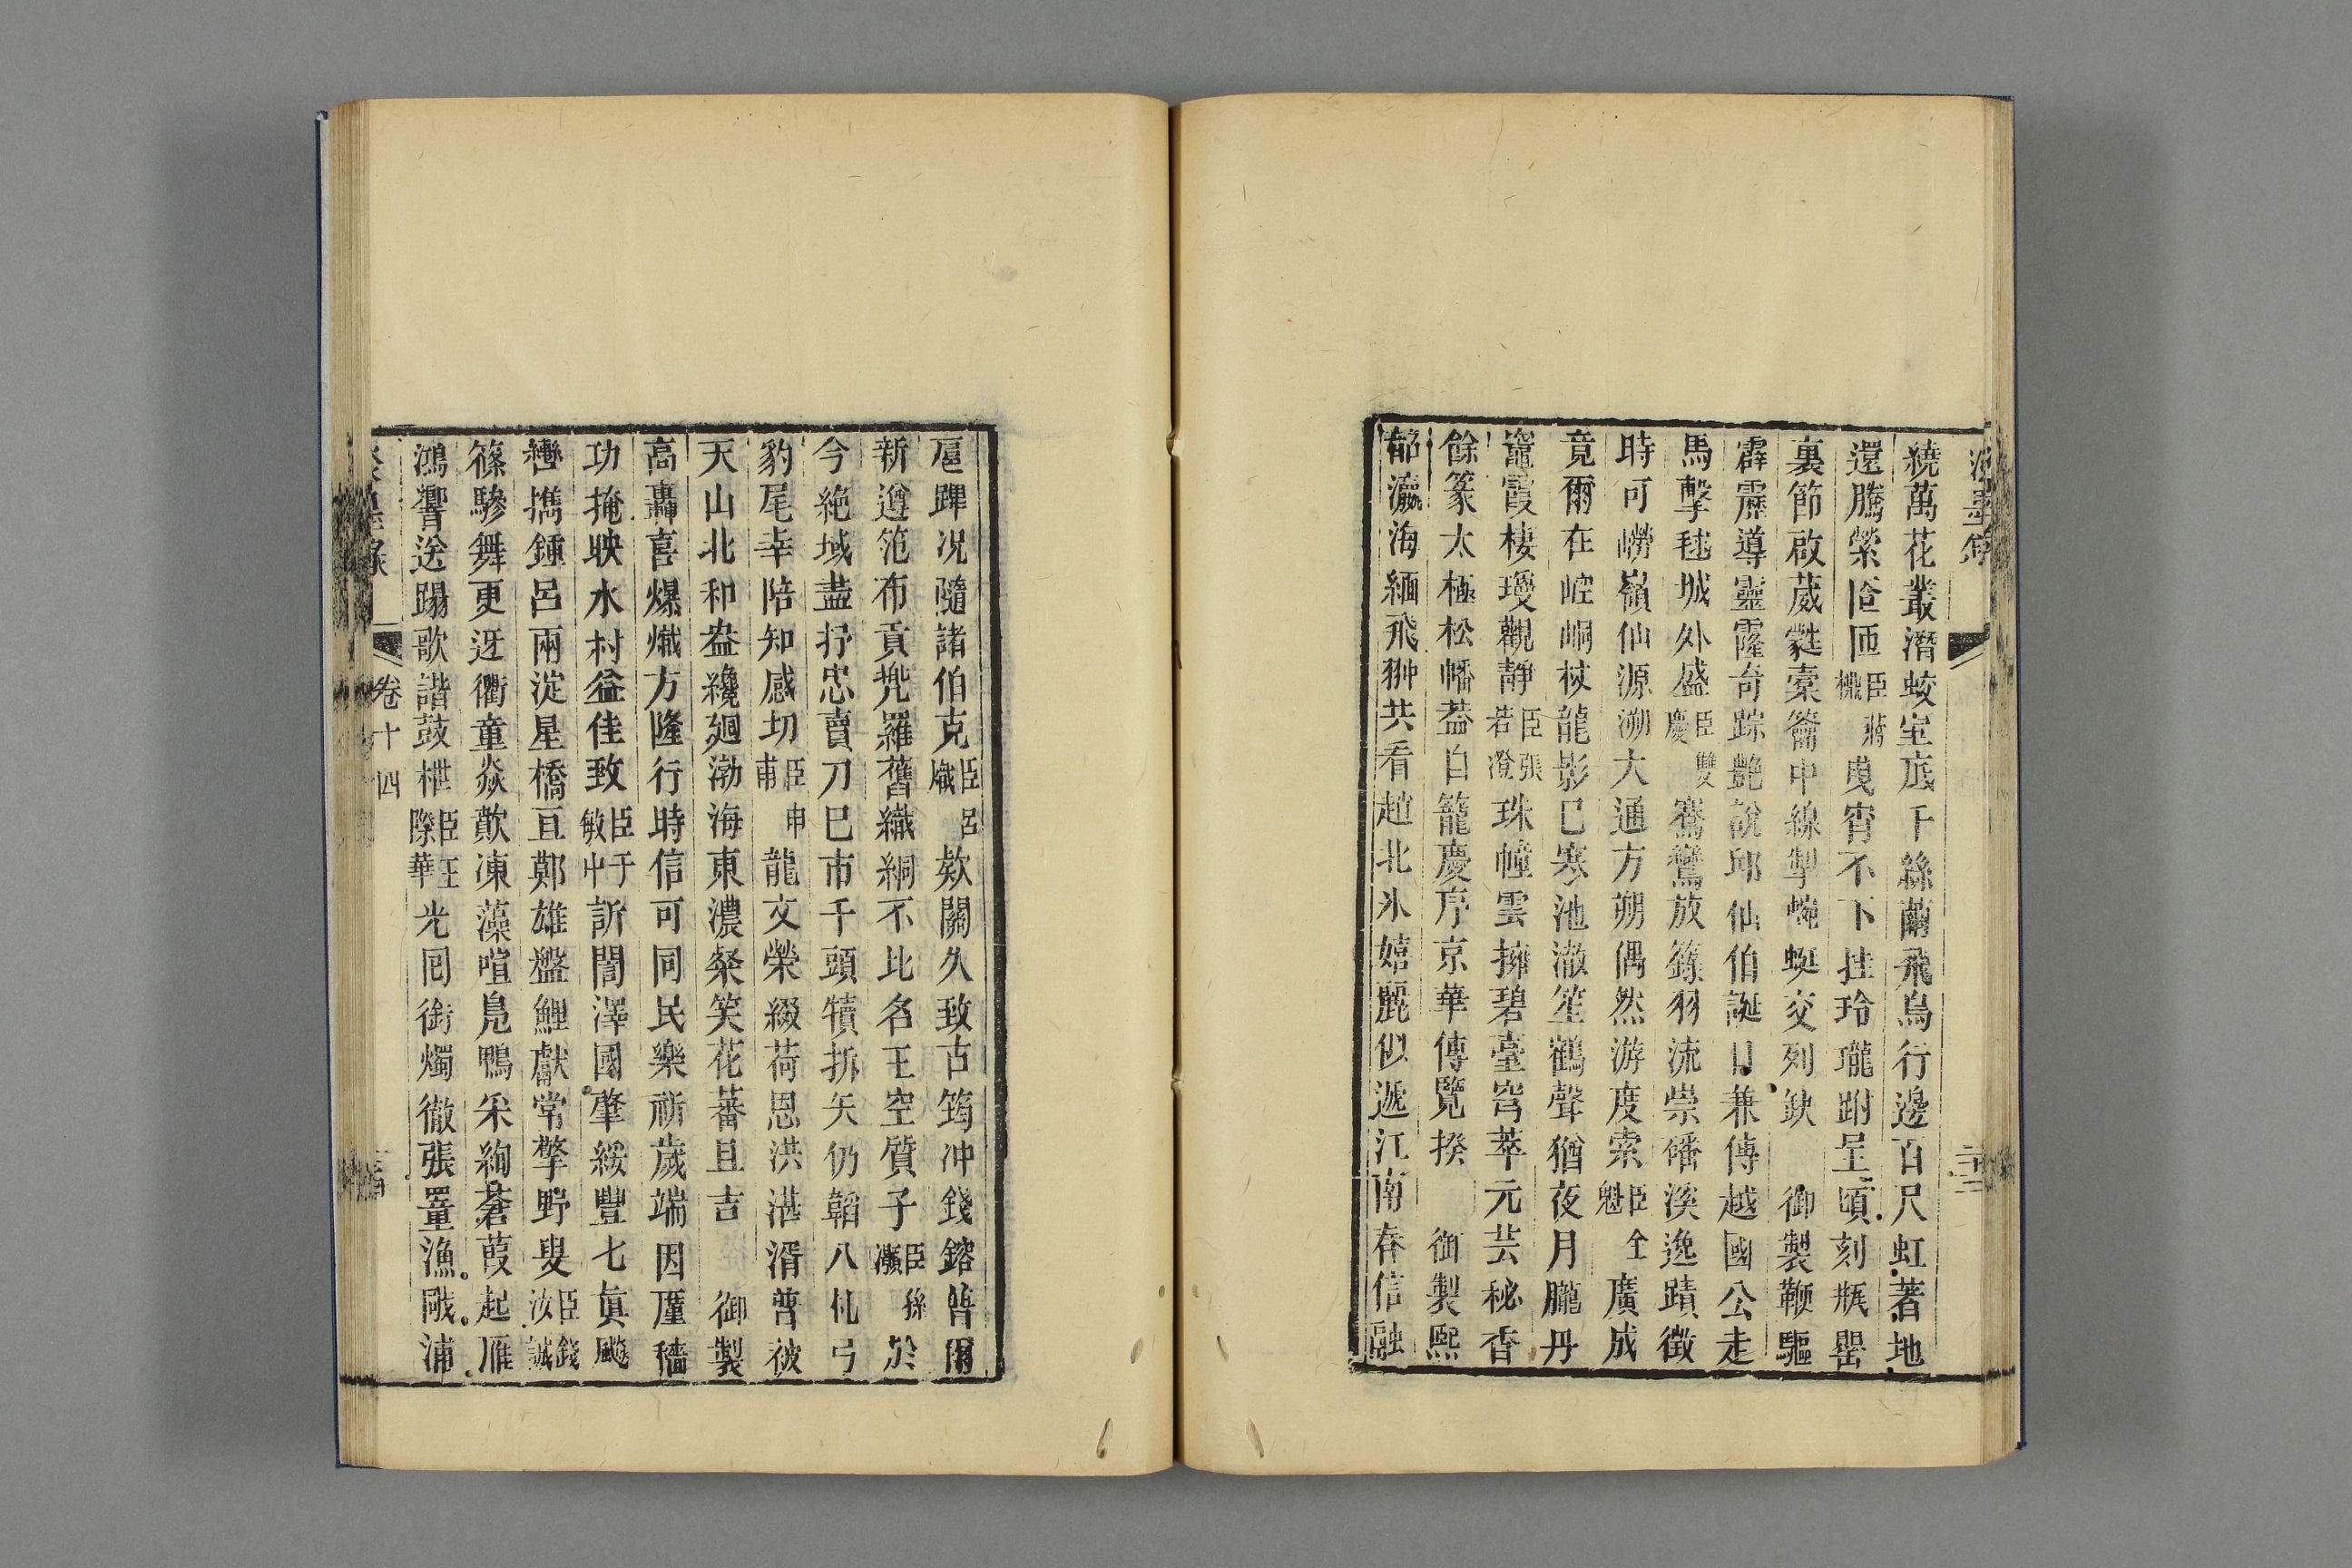 繞萬花叢潛蛟室底千絲繭飛烏行邊百尺虹著地
還騰縈匼匝臣蔣檝戌宵不下挂玲瓏跗呈頃刻瓶罌
裏節啟葳蕤橐籥中線掣蜿蜒交列缺 御製鞭驅
霹靂導靈霳奇踪艷說邱仙伯誕日兼傳越國公走
馬擊毬城外盛臣雙慶騫鸞放籙羽流崇磻溪逸蹟徵
時可嶗嶺仙源溯大通方朔偶然游度索臣全魁廣成
竟爾在崆峒杖龍影已寒池澈笙鶴聲猶夜月朧丹
竈霞棲瓊觀靜臣張若澄珠幢雲擁碧臺穹萃元芸秘香
餘篆太極松幡葢自籠慶序京華傳覽揆 御製熙
韶瀛海緬飛翀共看趙北氷嬉麗似遞江南春信融
扈蹕况隨諸伯克臣呂熾欵關久致古筠冲錢鎔普爾
新遵范布貢兠羅舊織絅不比名王空質子臣孫灝於
今絶域盡抒忠賣刀巳市千頭犢拆矢仍韜八札弓
豹尾幸陪知感切臣申甫龍文榮綴荷恩洪湛湑曾被
天山北和盎纔廻渤海東濃粲笑花蕃且吉 御製
高轟喜爆熾方隆行時信可同民樂祈歲端因廑穡
功掩映水村益佳致臣于敏中訢誾澤國肇綏豐七眞颷
轡擕鍾呂兩淀星橋亘鄚雄盤鯉獻常擎野叟臣錢汝誠
篠驂舞更迓衢童焱歕凍藻喧鳧鴨釆絢蒼葭起雁
鴻響送踼歌諧鼓枻臣汪際華光囘銜燭徹張罿漁 浦
卷十四